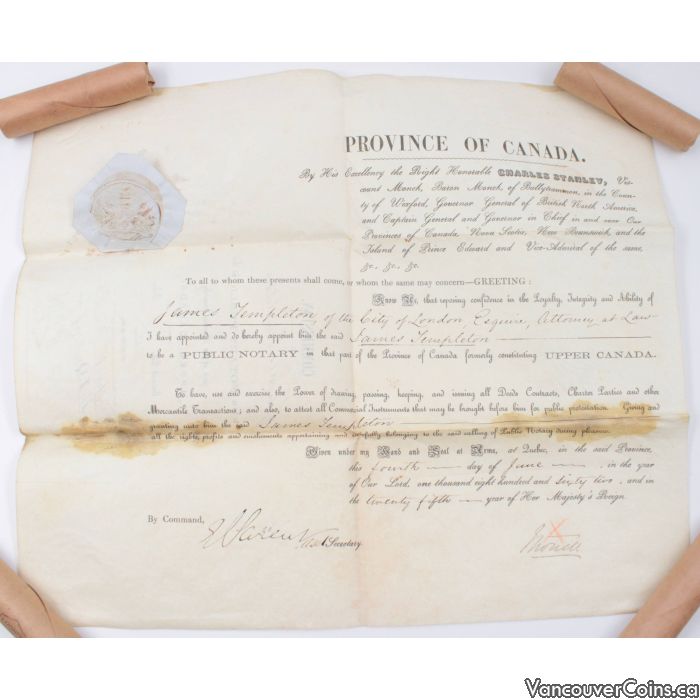 PROVINCE OF CANADA.
By His Excellency the Right Honorable CHARLES STANLEY, Vis-
count Monck, Baron Monck of Ballytrammon, in the Coun-
ty of Wexford, Governor General of British North America,
and Captain General and Governor in Chief in and over Our
Provinces of Canada, Nova Scotia, New Brunswick, and the
Island of Prince Edward and Vice-Admiral of the same,
&c. &c. &c.
To all to whom these presents shall come, or whom the same may concern—GREETING:
Know Ye, that reposing confidence in the Loyalty, Integrity and Ability of
James Templeton of the City of London, Esquire, Attorney at Law
I have appointed and do hereby appoint him the said James Templeton
to be a PUBLIC NOTARY in that part of the Province of Canada formerly constituting UPPER CANADA.
To have, use and exercise the Power of drawing, passing, keeping, and issuing all Deeds Contracts, Charter Parties and other
Mercantile Transactions; and also, to attest all Commercial Instruments that may be brought before him for public protestation. Giving and
granting unto him the said James Templeton
all the rights, profits and emoluments appertaining and lawfully belonging to the said calling of Public Notary during pleasure.
Given under my Hand and Seal at Arms, at Quebec, in the said Province,
this fourth day of June, in the year
of Our Lord, one thousand eight hundred and sixty two, and in
the twenty fifth year of Her Majesty's Reign.
By Command,
Asst Secretary.
Monck
VancouverCoins.ca